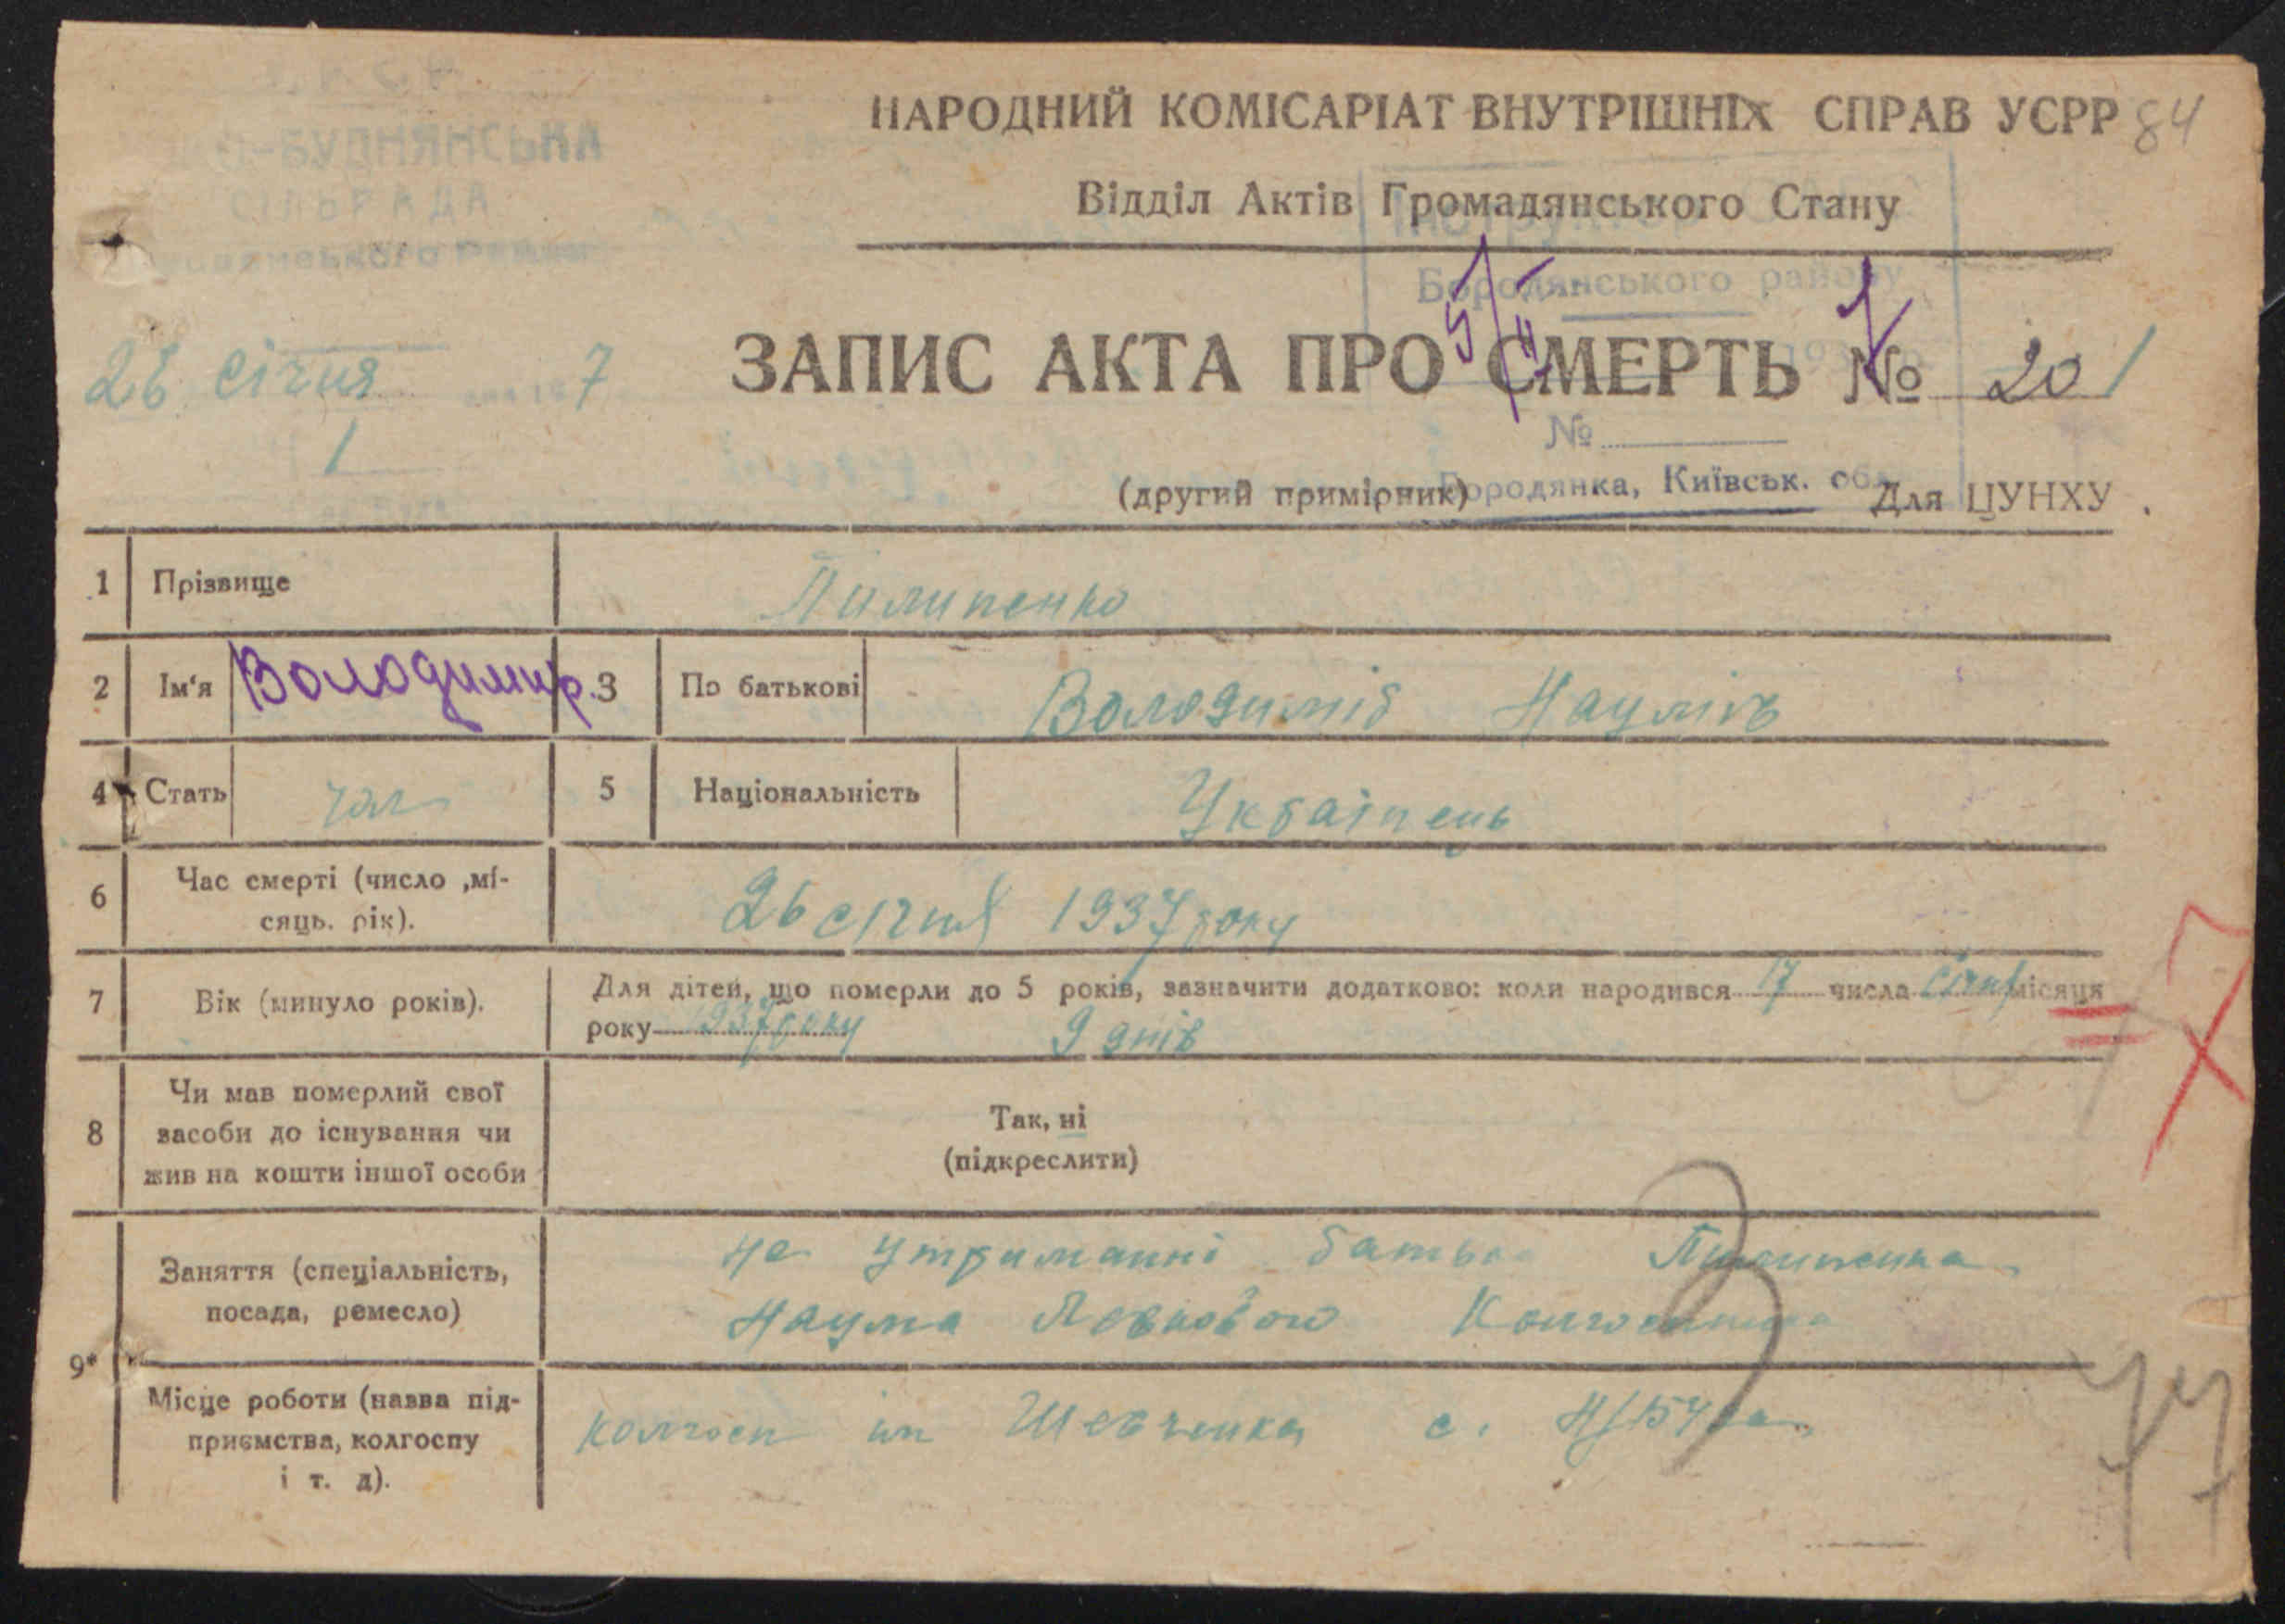 НАРОДНИЙ КОМІСАРІАТ ВНУТРІШНІХ СПРАВ УСРР 84
-БУДНЯНСЬКА
СІЛЬРАДА
Відділ Актів Громадянського Стану
Бородянського району
28 січня 7
1
ЗАПИС АКТА ПРО СМЕРТЬ № 20
№
(другий примірник)
Бородянка, Київськ. обл.
Для ЦУНХУ
1 Прізвище Пилипенко
2 Ім'я Володимир. 3 По батькові Володимір Наумів
4 Стать чол 5 Національність Українець
6 Час смерті (число ,мі-
сяць. рік). 26 січня 1937 року
7 Вік (минуло років). Для дітей, що померли до 5 років, зазначити додатково: коли народився 17 числа січня місяця
року 1937 року 9 днів
8 Чи мав померлий свої
засоби до існування чи
жив на кошти іншої особи
Так, ні
(підкреслити)
9*
Заняття (спеціальність,
посада, ремесло)
на утриманні батька Пилипенка
Наума
Місце роботи (назва під-
приємства, колгоспу
і т. д).
колгосп ім Шевченка с.